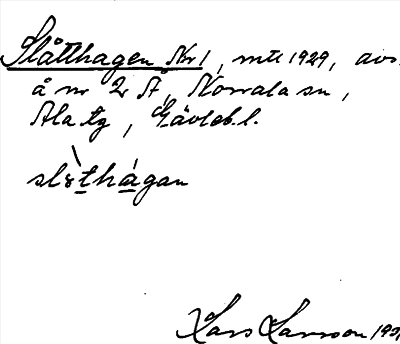 Slåtthagen Nr 1, mtl 1929, avs.
å nr 2 Å, Norrala sn,
Ala tg, Gävleb. l.
slåthagan
Lars Larsson 193